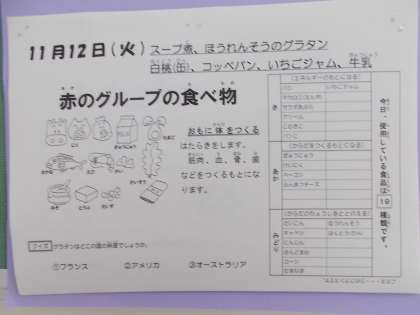 11月12日(火) スープ煮、ほうれんそうのグラタン
白桃(缶)、コッペパン、いちごジャム、牛乳
赤のグループの食べ物
おもに体をつくる
はたらきをします。
筋肉、血、骨、歯
などをつくるもとにな
ります。
にく
ぎゅうにゅう
たまご
さかな
えび
かい
かいそう
みそ
とうふ
だいず
クイズ グラタンはどこの国の料理でしょうか。
①フランス ②アメリカ ③オーストラリア
今日、使用している食品は19種類です。
き
(エネルギーのもとになる)
パン いちごジャム
クリーム
あか
(からだをつくるもとになる)
ぎゅうにゅう
とりにく
ベーコン
みどり
(からだのちょうしをととのえる)
ほうれんそう
キャベツ
にんじん
コーン
たまねぎ